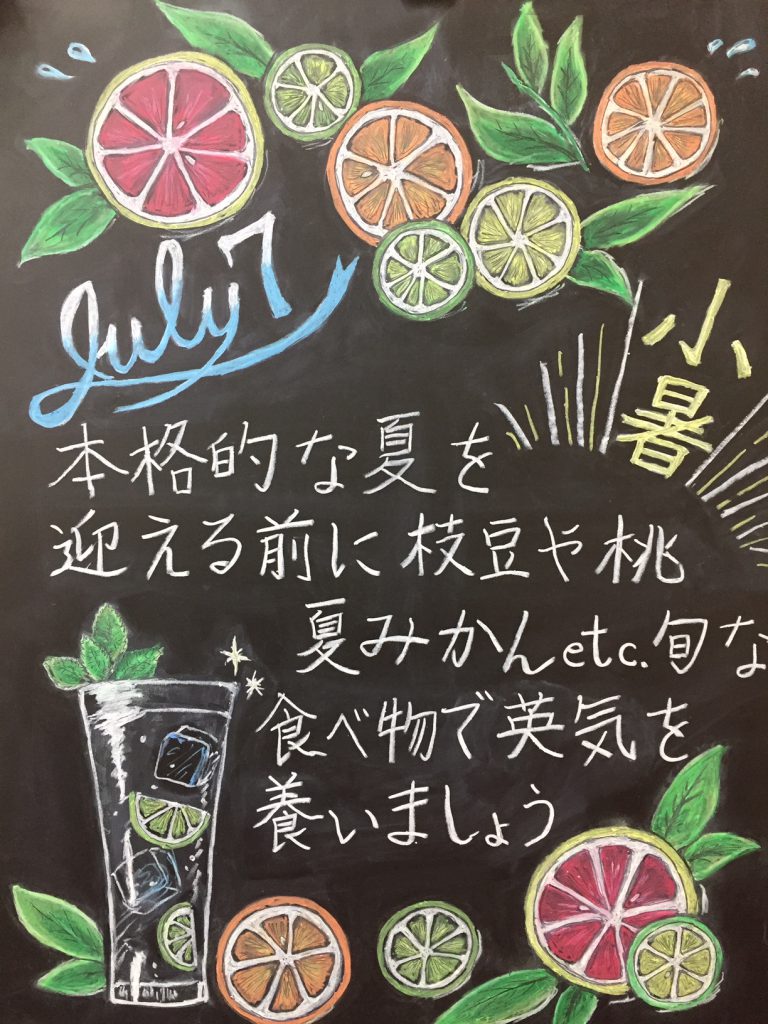 July 7
小暑
本格的な夏を
迎える前に枝豆や桃
夏みかんetc.旬な
食べ物で英気を
養いましょう